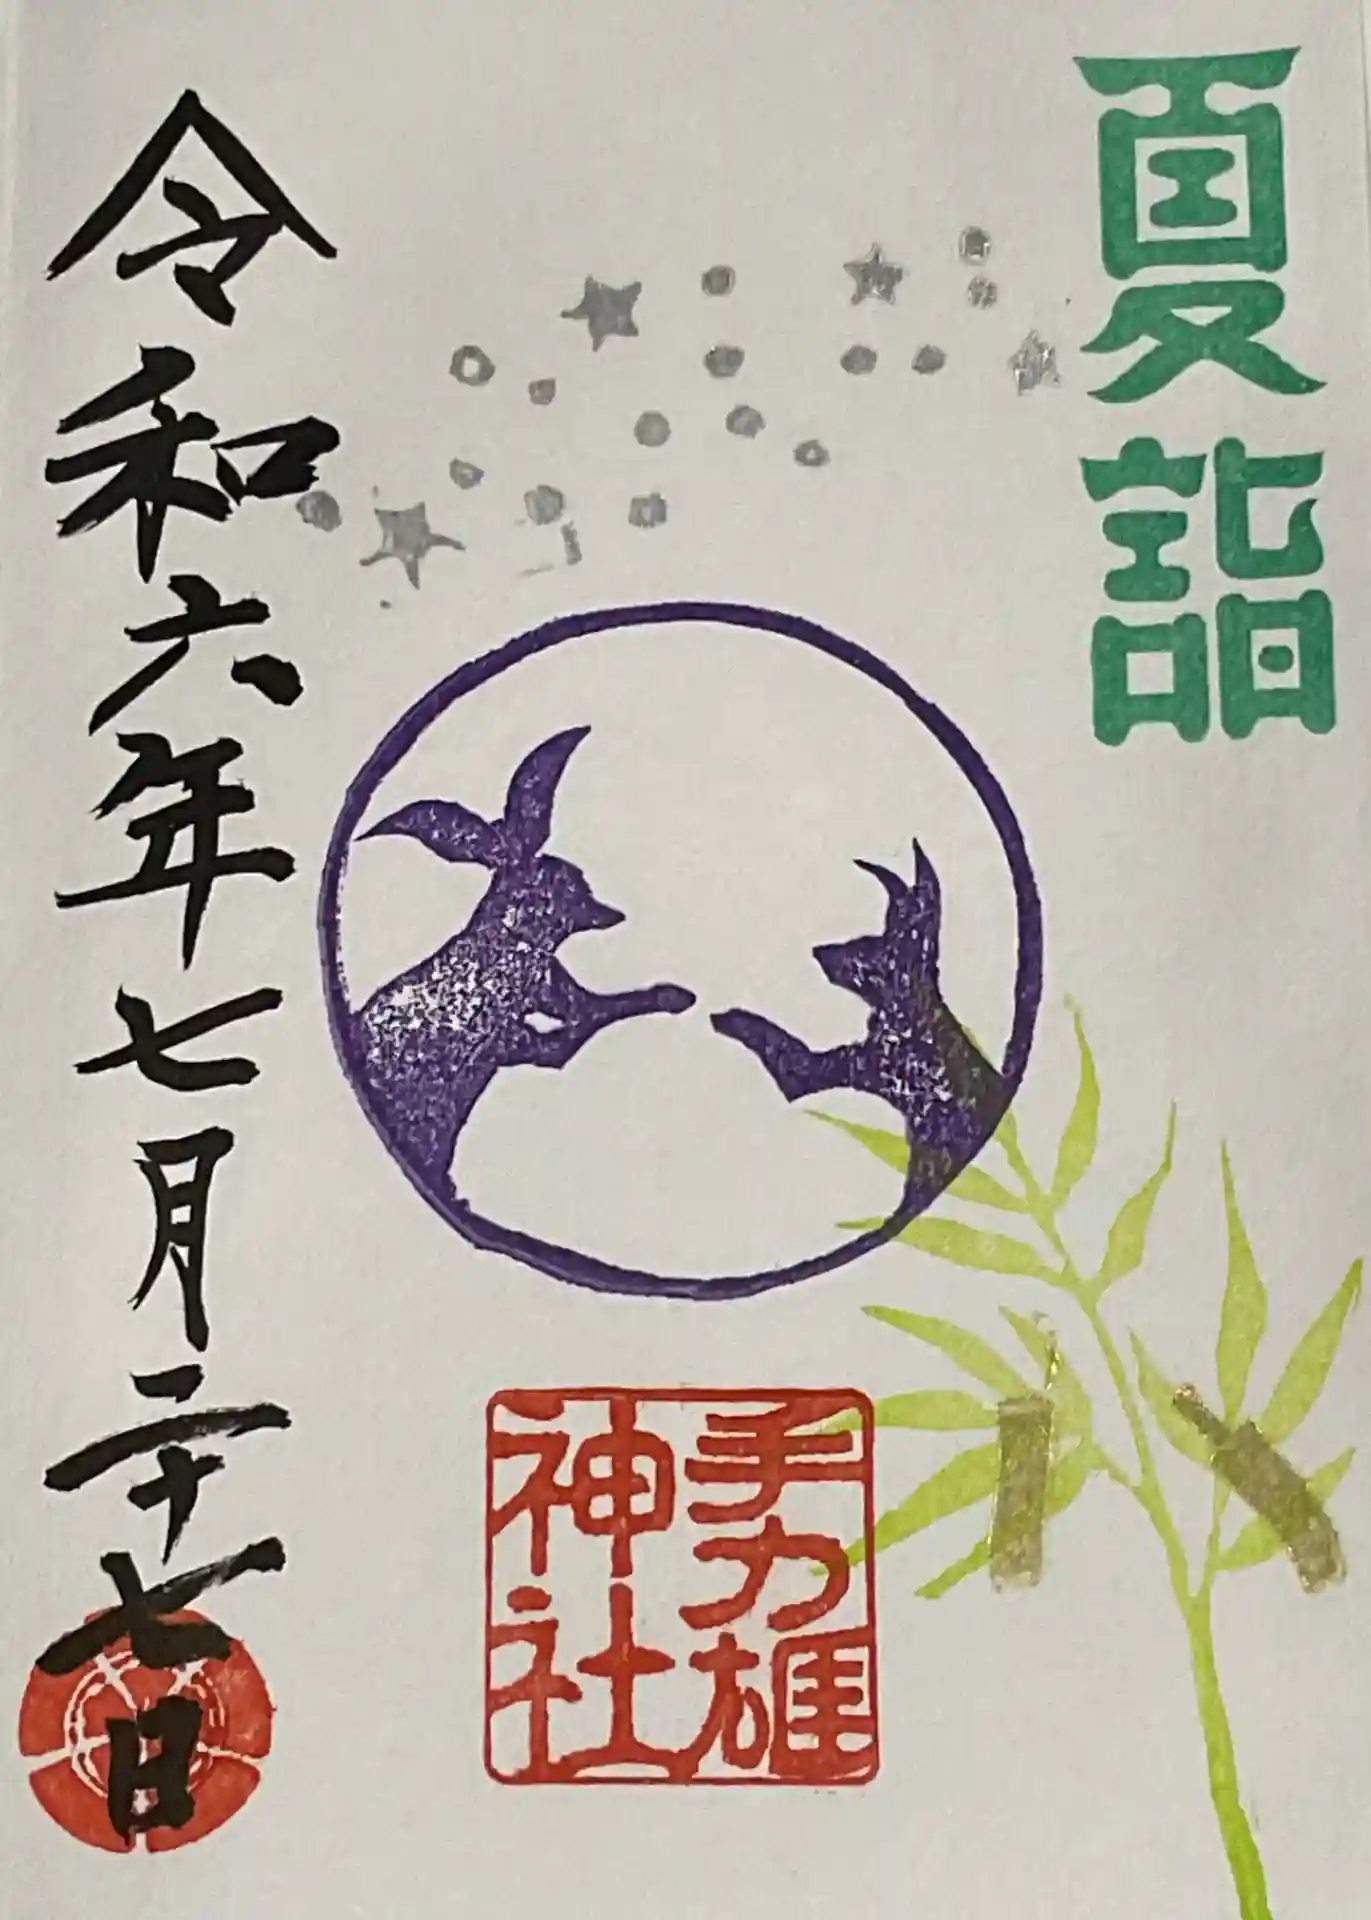 夏詣
手力雄
神社
令和六年七月二十七日